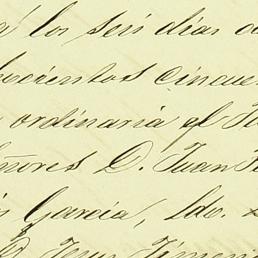 á los seis dias d
hecientos cincue
ordinaria el
ñores D. Juan
Garcia, Ldo.
D. Jesus Jimen